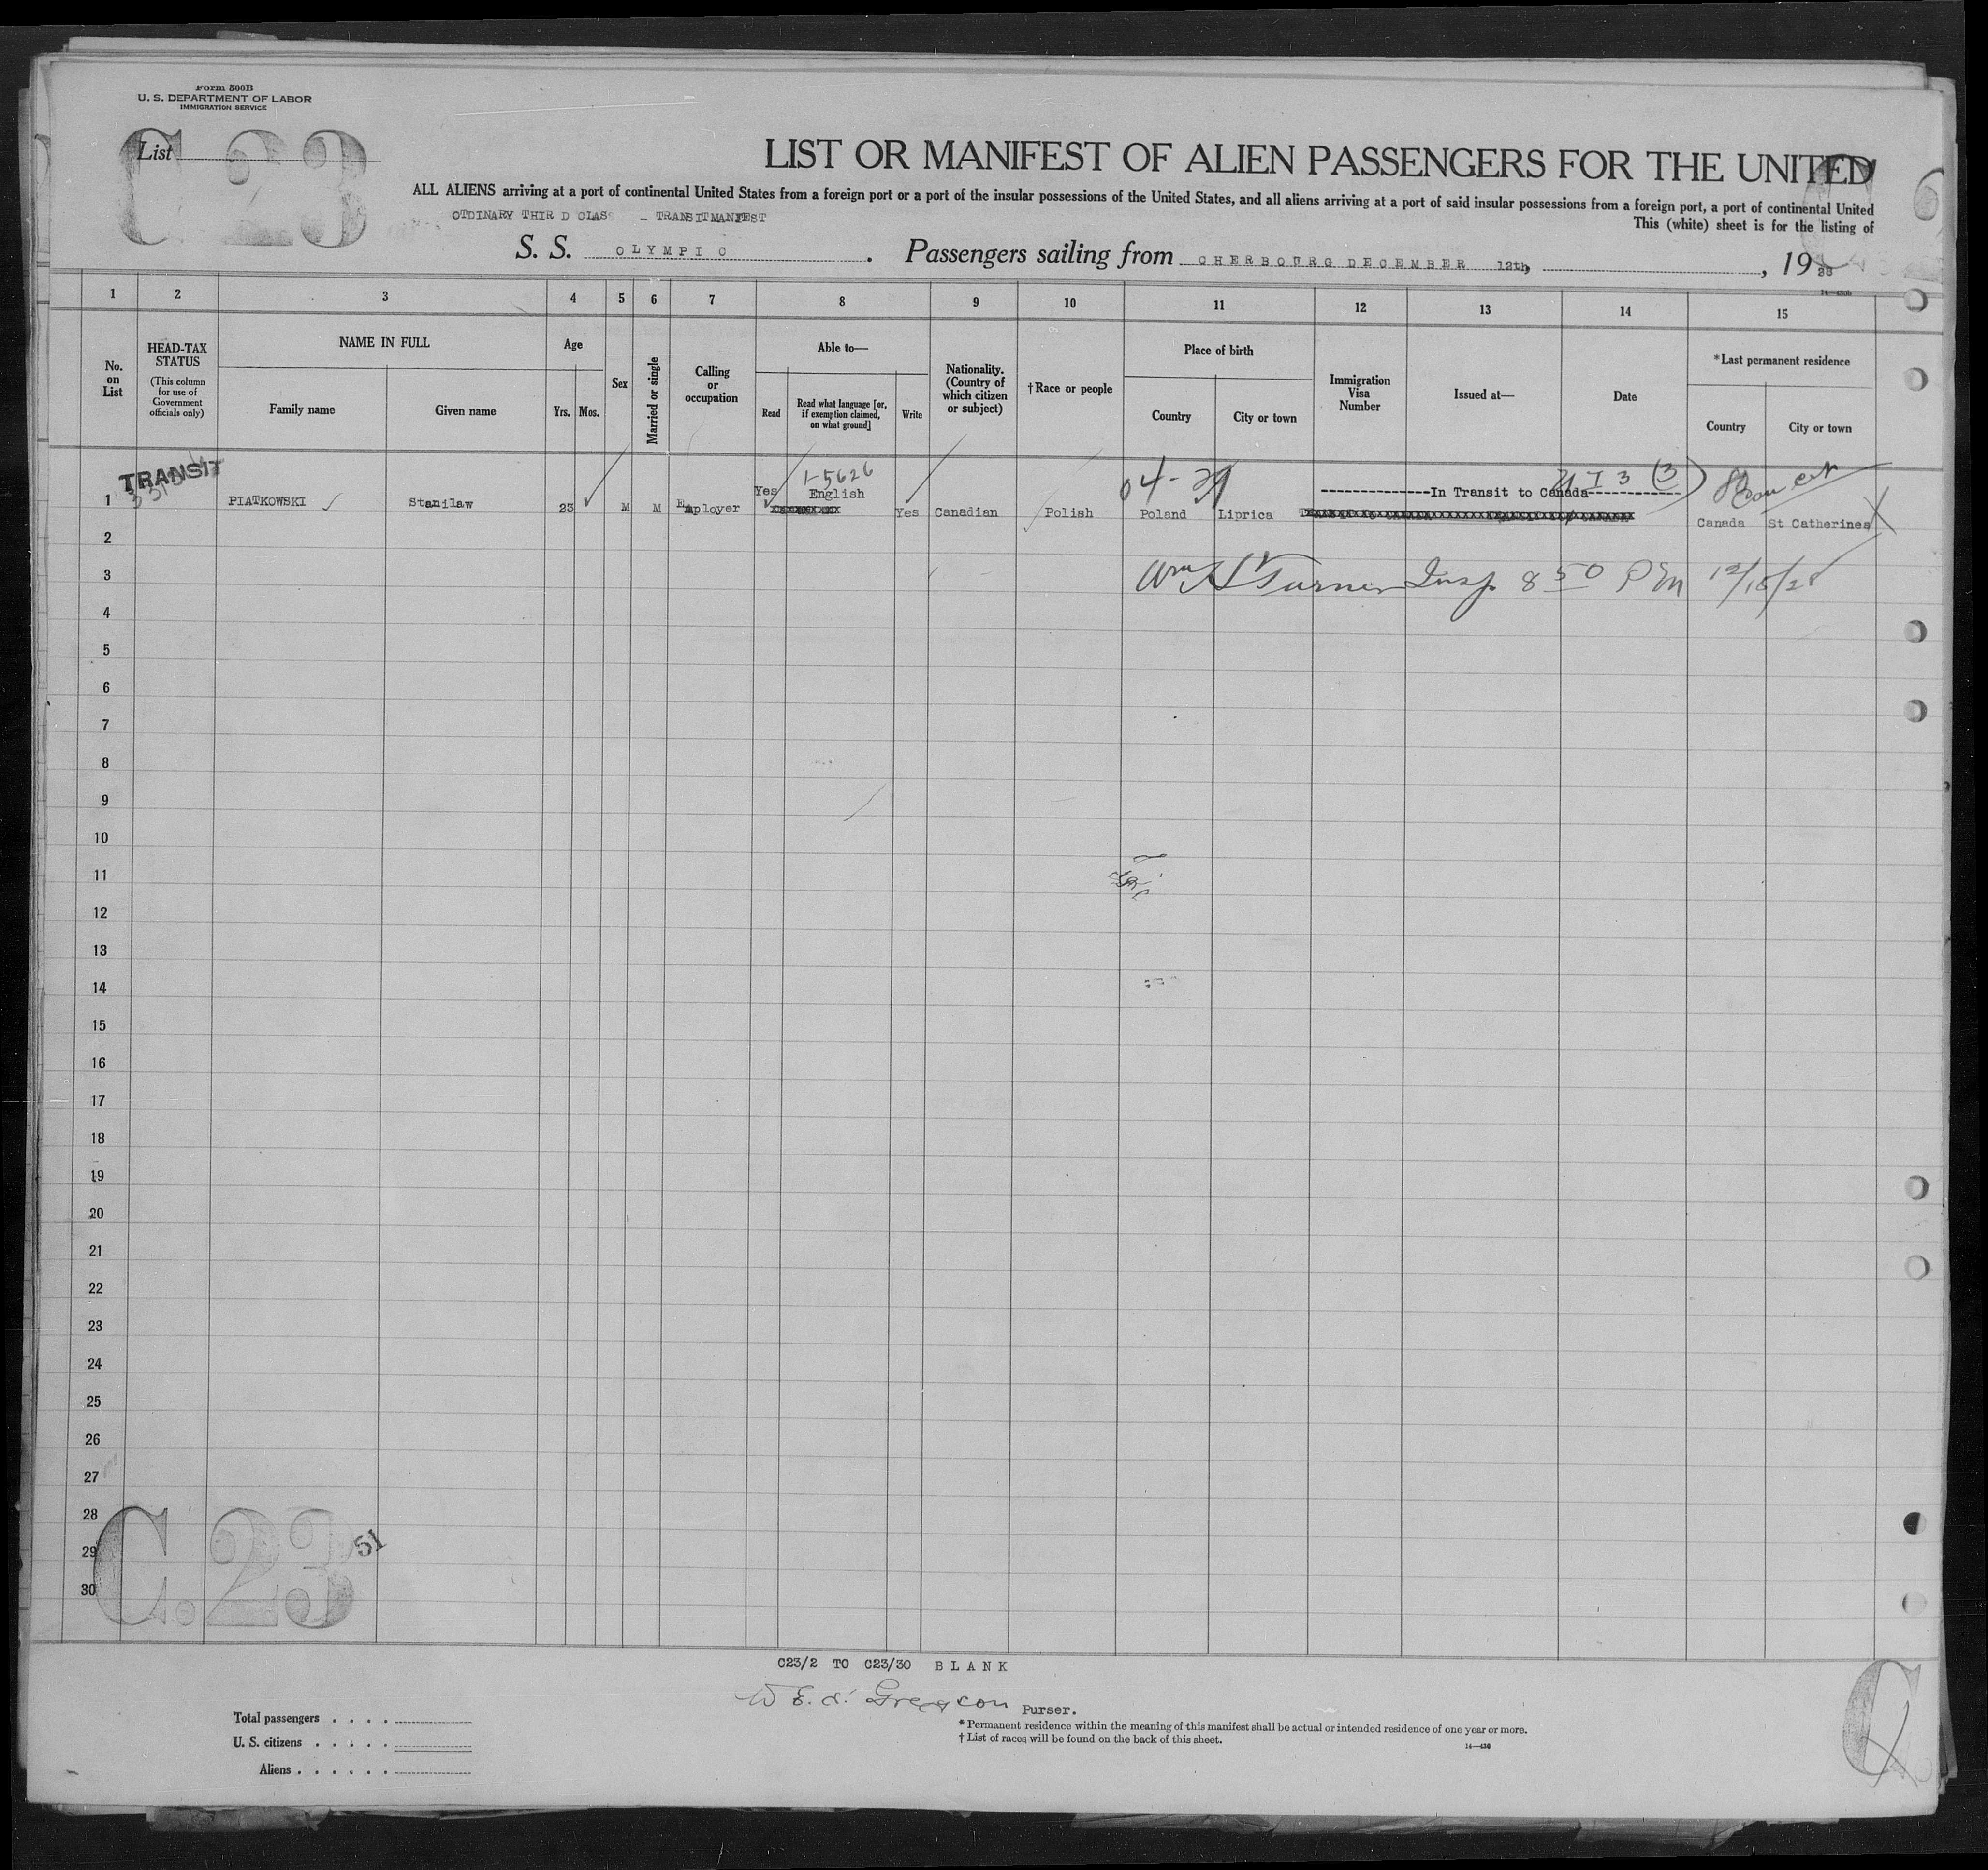 Form 500B
U. S. DEPARTMENT OF LABOR
IMMIGRATION SERVICE
C 23
List
LIST OR MANIFEST OF ALIEN PASSENGERS FOR THE UNITED
ALL ALIENS arriving at a port of continental United States from a foreign port or a port of the insular possessions of the United States, and all aliens arriving at a port of said insular possessions from a foreign port, a port of continental United
OTDINARY THIR D CLASS - TRANSITMANIFEST
This (white) sheet is for the listing of
S. S. OLYMPIC . Passengers sailing from CHERBOURG DECEMBER 12th, , 1928
14-430b
1 2 3 4 5 6 7 8 9 10 11 12 13 14 15
No. on List
HEAD-TAX STATUS
(This column for use of Government officials only)
NAME IN FULL
Family name Given name
Age
Yrs. Mos.
Sex
Married or single
Calling or occupation
Able to—
Read
Read what language [or, if exemption claimed, on what ground]
Write
Nationality. (Country of which citizen or subject)
†Race or people
Place of birth
Country City or town
Immigration Visa Number
Issued at—
Date
*Last permanent residence
Country City or town
TRANSIT
1-5626
04-29
1 PIATKOWSKI Stanilaw 23 M M Employer Yes English Yes Canadian Polish Poland Liprica In Transit to Canada Canada St Catherines
2
3 Wm Turner Insp. 8 50 PM 12/18/28
4
5
6
7
8
9
10
11
12
13
14
15
16
17
18
19
20
21
22
23
24
25
26
27
28
29
30
C.23
51
C23/2 TO C23/30 BLANK
Purser.
Total passengers . . . .
U. S. citizens . . . . .
Aliens . . . . . .
* Permanent residence within the meaning of this manifest shall be actual or intended residence of one year or more.
† List of races will be found on the back of this sheet.
14—430
C